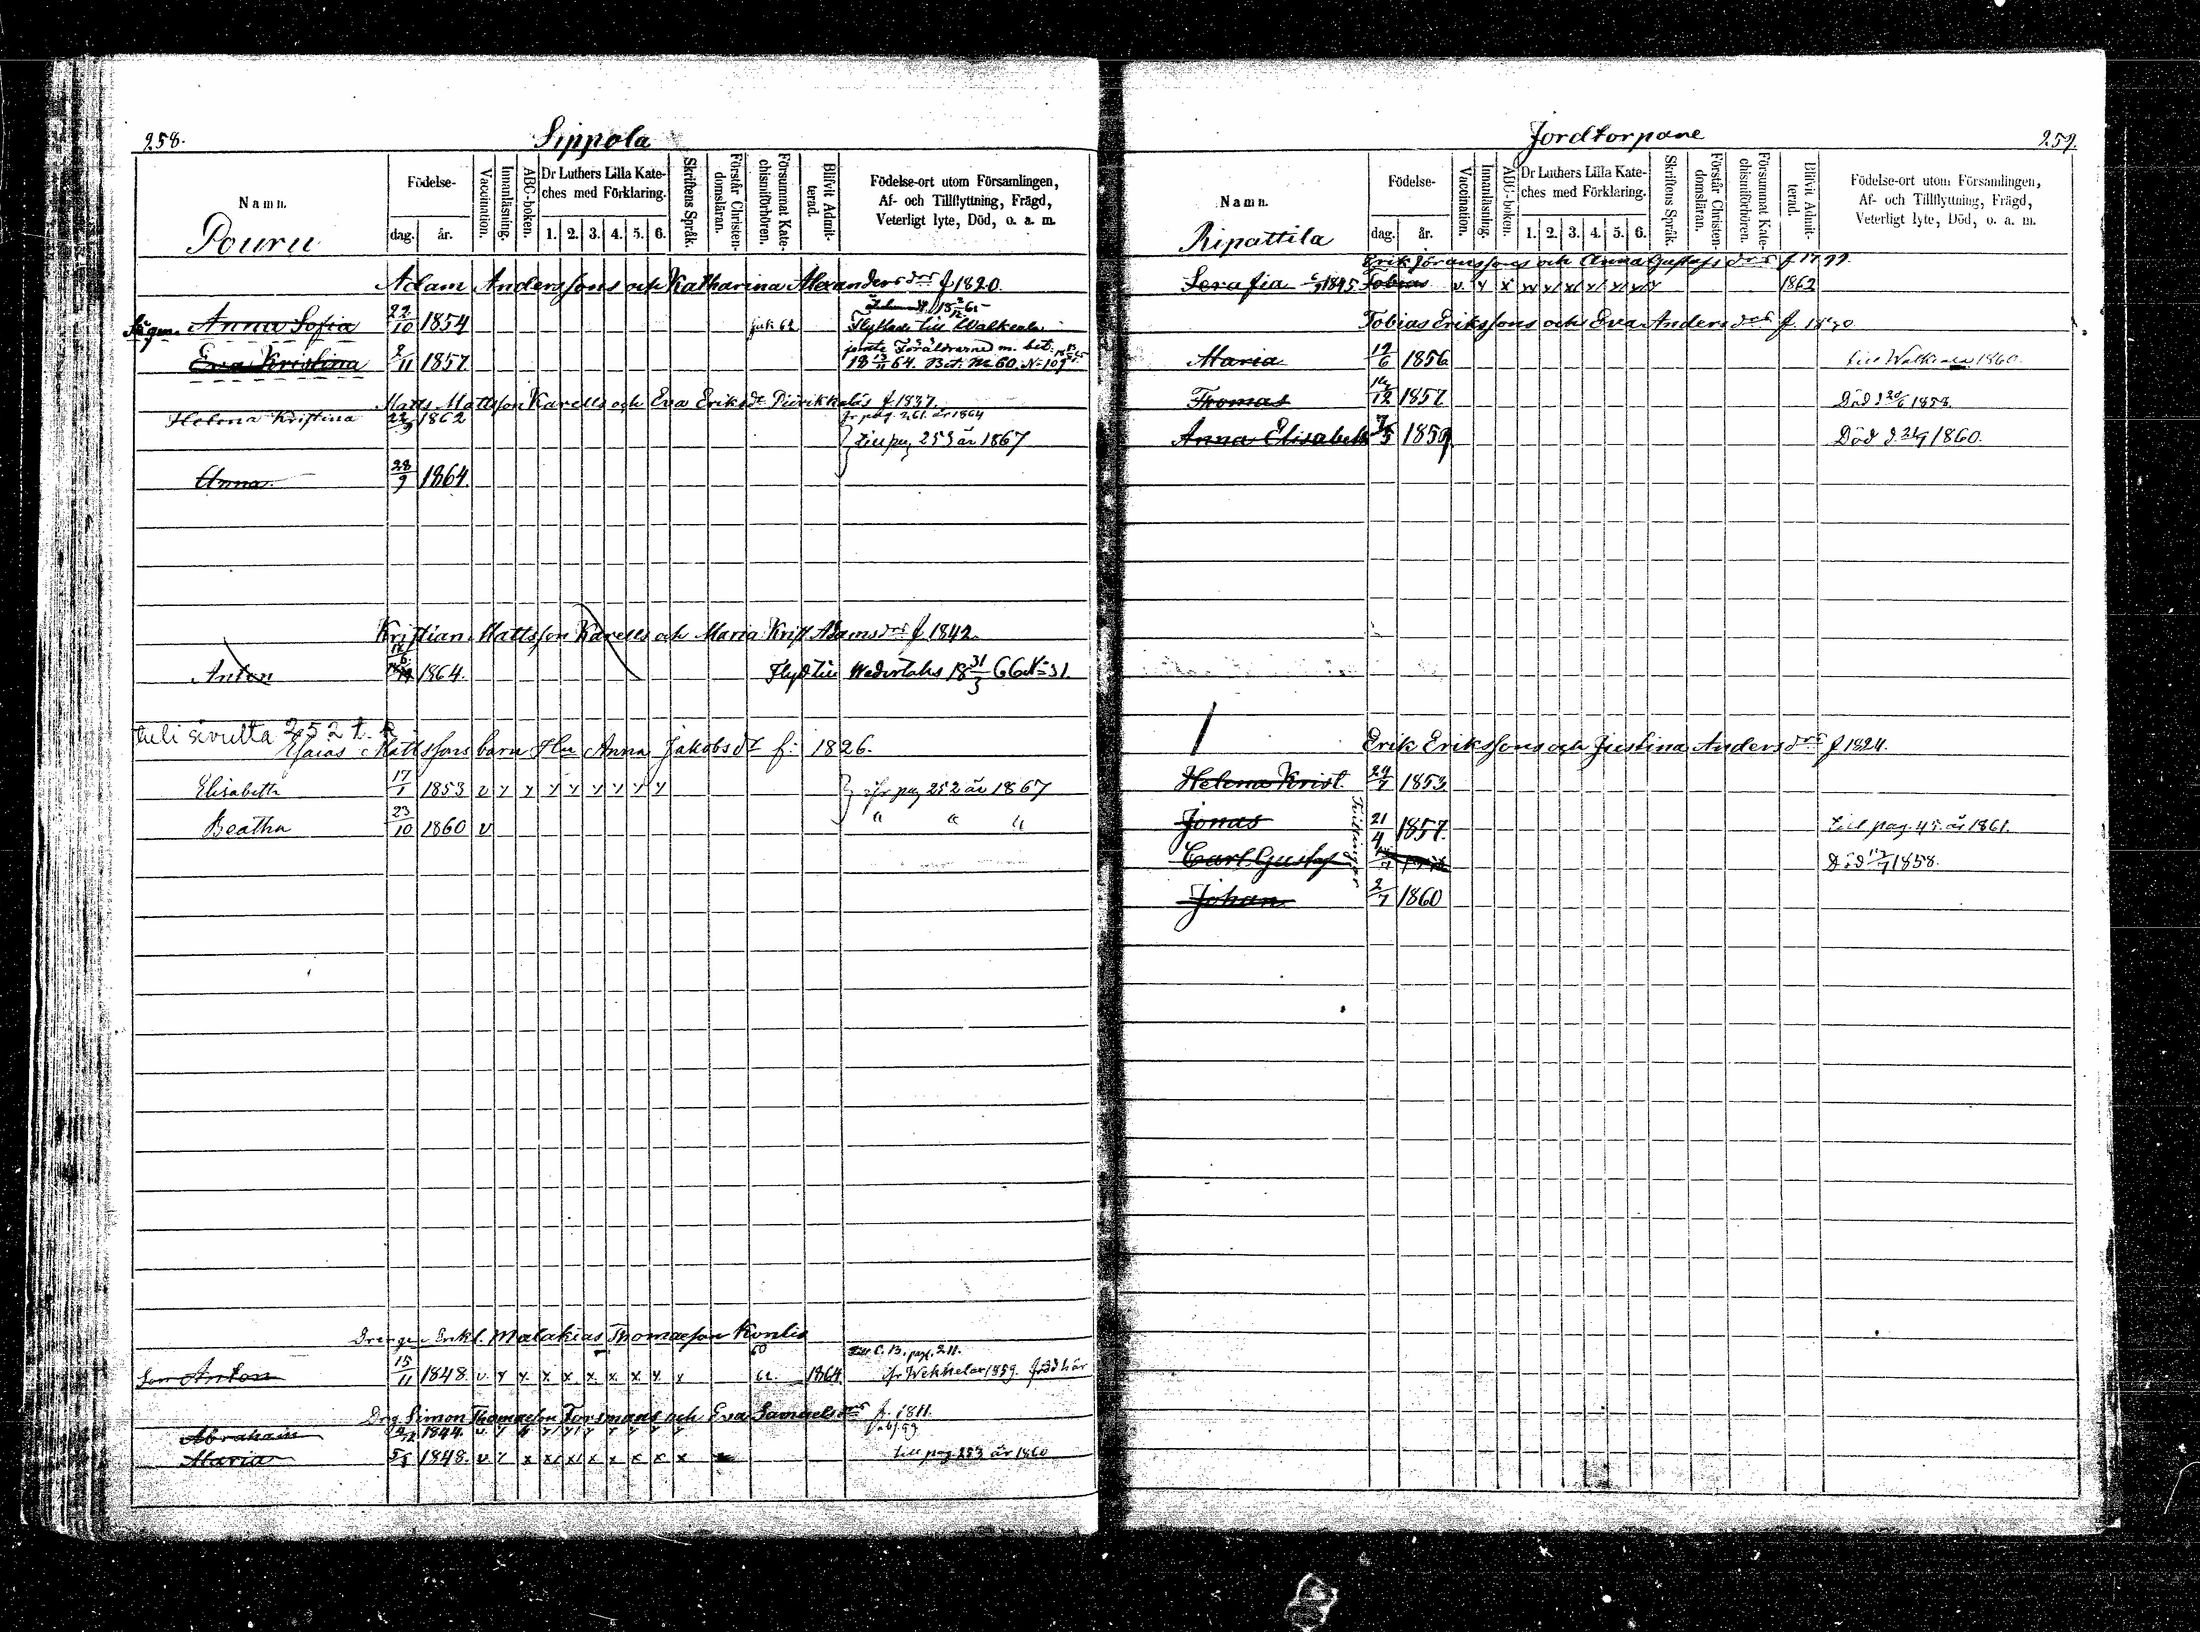 258.
Sippola
Namn.
Födelse-
dag.
år.
Vaccination.
Innanläsning.
ABC-boken.
Dr Luthers Lilla Kate-
ches med Förklaring.
1. 2. 3. 4. 5. 6.
Skriftens Språk.
Förstår Christen-
domsläran.
Försummat Kate-
chismiförhören.
Blifvit Admit-
terad.
Födelse-ort utom Församlingen,
Af- och Tillflyttning, Frägd,
Veterligt lyte, Död, o. a. m.
Pouru
Adam Anderssons och Katharina Alexandersdr f 1820.
Anna Sofia 22/10 1854
Flyttade till Walkeala
Eva Kristina 2/11 1857
18 13/11 64. Bet. No 60. N=109
Matts Mattsson Karells och Eva Eriksdt f 1837.
Helena Kristina 1862
fr pag. 261 år 1864
till pag 253 år 1867
Anna 28/9 1864
Kristian Mattsson Karells och Maria Krist Adamsdr f 1842.
Anton 1864.
Flyt till Wederlaks 18 31/3 66 N=31.
tuli sivulta 252 t. k
Esaias Mattssons barn Hu Anna Jakobsdt f: 1826.
Elisabeth 17/1 1853 v y y y y y y y y
ifr pag 252 år 1867
Beatha 23/10 1860 v
" " "
Drengen Enkl. Malakias Thomasson Konlis
60
till C. B. pag. 211.
Son Anton 15/11 1848 v y x x x x x x y y 62. 1864
ifr Wekkelax 1859. född här
Drg Simon Thomasson Forsmans och Eva Samuelsdr f. 1811.
Abraham 1844.
Maria 5/5 1848. v y x x x x x x x x
till pag. 253 år 1860
Jordtorpare
259.
Namn.
Födelse-
dag.
år.
Vaccination.
Innanläsning.
ABC-boken.
Dr Luthers Lilla Kate-
ches med Förklaring.
1. 2. 3. 4. 5. 6.
Skriftens Språk.
Förstår Christen-
domsläran.
Försummat Kate-
chismiförhören.
Blifvit Admit-
terad.
Födelse-ort utom Församlingen,
Af- och Tillflyttning, Frägd,
Veterligt lyte, Död, o. a. m.
Ripattila
Erik Jöranssons och Anna Gustafsdr f. 1799.
Serafia 1845. Tobias 1862
Tobias Erikssons och Eva Andersdr f. 1830
Maria 12/6 1856
till Walkeala 1860.
Thomas 1857.
Död d 20/6 1858.
Anna Elisabeth 7/5 1859
Död d. 21/9 1860.
Erik Erikssons och Justina Andersdr f 1824.
Helena Krist. 24/7 1853
Jonas 21/4 1857.
till pag. 45. år 1861.
Carl Gustaf
Tvillingar
Död 17/7 1858.
Johan 2/7 1860